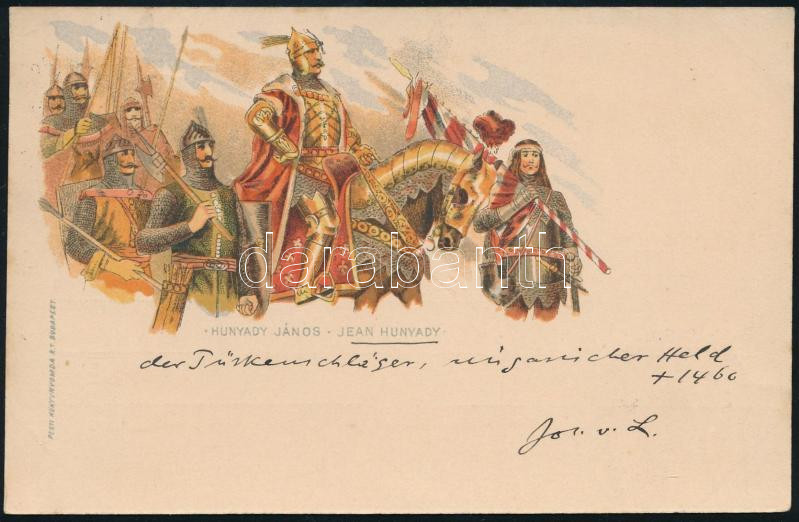 darabanth
· HUNYADY JÁNOS · JEAN HUNYADY ·
der Türkenschläger, ungarischer Held
+ 1460
Jos. v. L.
PESTI KÖNYVNYOMDA R.T. BUDAPEST